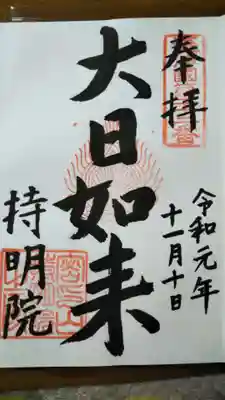 奉拝
令和元年
十一月十日
大日如来
持明院